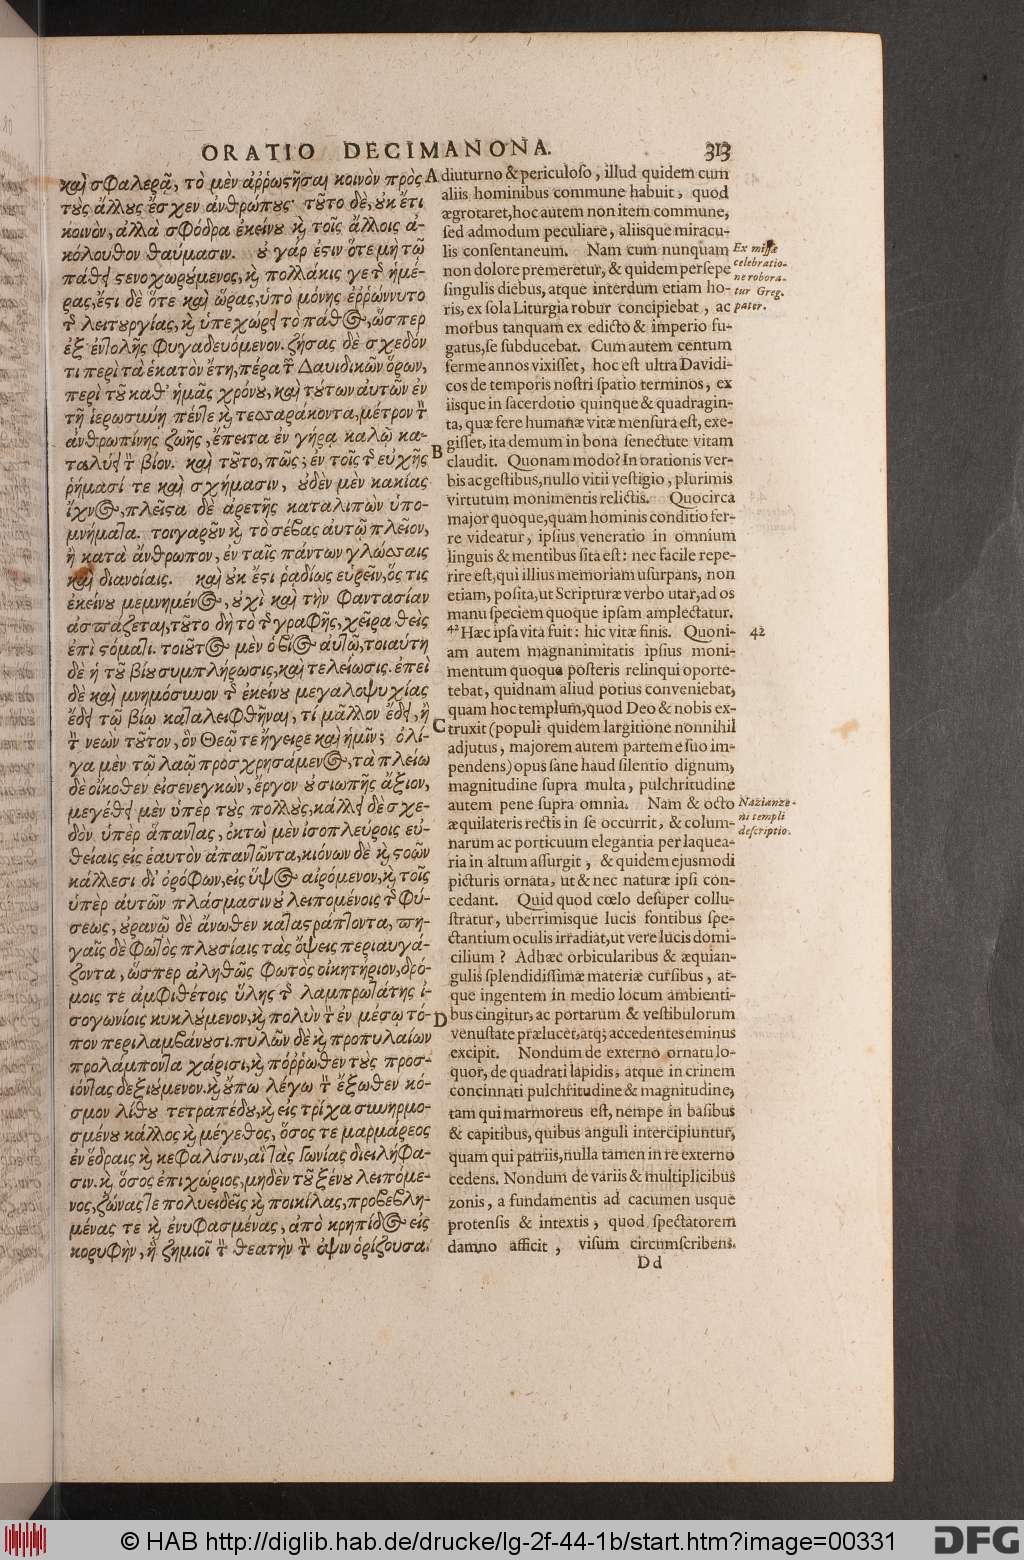 ORATIO DECIMANONA. 313
καὶ σφαλερᾷ, τὸ μὲν ἀῤῥωστῆσαι κοινὸν πρὸς
τοὺς ἄλλους ἔσχεν ἀνθρώπους· τοῦτο δὲ, οὐκ ἔτι
κοινὸν, ἀλλὰ σφόδρα ἐκείνου καὶ τοῖς ἄλλοις ἀ-
κόλουθον θαύμασιν. οὐ γάρ ἐστιν ὅτε μὴ τῷ
πάθει στενοχωρούμενος, καὶ πολλάκις γε τῆς ἡμέ-
ρας, ἔστι δὲ ὅτε καὶ ὥρας, ὑπὸ μόνης ἐῤῥώννυτο
τῆς λειτουργίας, καὶ ὑπεχώρει τὸ πάθος, ὥσπερ
ἐξ ἐντολῆς φυγαδευόμενον. ζήσας δὲ σχεδόν
τι περὶ τὰ ἑκατὸν ἔτη, πέρα τῶν Δαυιδικῶν ὅρων,
περὶ τοῦ καθ' ἡμᾶς χρόνου, καὶ τούτων αὐτῶν ἐν
τῇ ἱερωσύνῃ πέντε καὶ τεσσαράκοντα, μέτρον τῆς
ἀνθρωπίνης ζωῆς, ἔπειτα ἐν γήρᾳ καλῷ κα-
ταλύει τὸν βίον. καὶ τοῦτο, πῶς; ἐν τοῖς τῆς εὐχῆς
ῥήμασί τε καὶ σχήμασιν, οὐδὲν μὲν κακίας
ἴχνος, πλεῖστα δὲ ἀρετῆς καταλιπὼν ὑπο-
μνήματα. τοιγαροῦν καὶ τὸ σέβας αὐτῷ πλεῖον,
ἢ κατὰ ἄνθρωπον, ἐν ταῖς πάντων γλώσσαις
καὶ διανοίαις. καὶ οὐκ ἔστι ῥᾳδίως εὑρεῖν, ὅς τις
ἐκείνου μεμνημένος, οὐχὶ καὶ τὴν φαντασίαν
ἀσπάζεται, τοῦτο δὴ τὸ τῆς γραφῆς, χεῖρα θεὶς
ἐπὶ στόματι. τοιοῦτος μὲν ὁ βίος αὐτῷ, τοιαύτη
δὲ ἡ τοῦ βίου συμπλήρωσις, καὶ τελείωσις. ἐπεὶ
δὲ καὶ μνημόσυνον τῆς ἐκείνου μεγαλοψυχίας
ἔδει τῷ βίῳ καταλειφθῆναι, τί μᾶλλον ἔδει, ἢ
τὸν νεὼν τοῦτον, ὃν Θεῷ τε ἤγειρε καὶ ἡμῖν; ὀλί-
γα μὲν τῷ λαῷ προσχρησάμενος, τὰ πλείω
δὲ οἴκοθεν εἰσενεγκὼν, ἔργον οὐ σιωπῆς ἄξιον,
μεγέθει μὲν ὑπὲρ τοὺς πολλοὺς, κάλλει δὲ σχε-
δὸν ὑπὲρ ἅπαντας, ὀκτὼ μὲν ἰσοπλεύροις εὐ-
θείαις εἰς ἑαυτὸν ἀπαντῶντα, κιόνων δὲ καὶ στοῶν
κάλλεσι δι' ὀρόφων, εἰς ὕψος αἰρόμενον, καὶ τοῖς
ὑπὲρ αὐτῶν πλάσμασιν οὐ λειπομένοις τῆς φύ-
σεως, οὐρανῷ δὲ ἄνωθεν καταστράπτοντα, πη-
γαῖς δὲ φωτὸς πλουσίαις τὰς ὄψεις περιαυγά-
ζοντα, ὥσπερ ἀληθῶς φωτὸς οἰκητήριον, δρό-
μοις τε ἀμφιθέτοις ὕλης τῆς λαμπροτάτης ἰ-
σογωνίοις κυκλούμενον, καὶ πολὺν τὸν ἐν μέσῳ τό-
πον περιλαμβάνουσι. πυλῶν δὲ καὶ προπυλαίων
προλάμποντα χάρισι, καὶ πόῤῥωθεν τοὺς προσ-
ιόντας δεξιούμενον. καὶ οὔπω λέγω τὸν ἔξωθεν κό-
σμον λίθου τετραπέδου, καὶ εἰς τρίχα συνηρμο-
σμένου κάλλος καὶ μέγεθος, ὅσος τε μαρμάρεος
ἐν ἕδραις καὶ κεφαλίσιν, αἳ τὰς γωνίας διειλήφα-
σιν. καὶ ὅσος ἐπιχώριος, μηδὲν τοῦ ξένου λειπόμε-
νος, ζώνας τε πολυειδεῖς καὶ ποικίλας, προβεβλη-
μένας τε καὶ ἐνυφασμένας, ἀπὸ κρηπίδος εἰς
κορυφὴν, ἣ ζημιοῖ τὸν θεατὴν τὴν ὄψιν ὁρίζουσα.
A
B
C
D
diuturno & periculoso, illud quidem cum
aliis hominibus commune habuit, quod
ægrotaret, hoc autem non item commune,
sed admodum peculiare, aliisque miracu-
lis consentaneum. Nam cum nunquam
non dolore premeretur, & quidem persepe
singulis diebus, atque interdum etiam ho-
ris, ex sola Liturgia robur concipiebat, ac
morbus tanquam ex edicto & imperio fu-
gatus, se subducebat. Cum autem centum
ferme annos vixisset, hoc est ultra Davidi-
cos de temporis nostri spatio terminos, ex
iisque in sacerdotio quinque & quadragin-
ta, quæ fere humanæ vitæ mensura est, exe-
gisset, ita demum in bona senectute vitam
claudit. Quonam modo? In orationis ver-
bis ac gestibus, nullo vitii vestigio, plurimis
virtutum monimentis relictis. Quocirca
major quoque, quam hominis conditio fer-
re videatur, ipsius veneratio in omnium
linguis & mentibus sita est: nec facile repe-
rire est, qui illius memoriam usurpans, non
etiam, posita, ut Scripturæ verbo utar, ad os
manu speciem quoque ipsam amplectatur.
42 Hæc ipsa vita fuit: hic vitæ finis. Quoni-
am autem magnanimitatis ipsius moni-
mentum quoque posteris relinqui oporte-
tebat, quidnam aliud potius conveniebat,
quam hoc templum, quod Deo & nobis ex-
truxit (populi quidem largitione nonnihil
adjutus, majorem autem partem e suo im-
pendens) opus sane haud silentio dignum,
magnitudine supra multa, pulchritudine
autem pene supra omnia. Nam & octo
æquilateris rectis in se occurrit, & colum-
narum ac porticuum elegantia per laquea-
ria in altum assurgit, & quidem ejusmodi
picturis ornata, ut & nec naturæ ipsi con-
cedant. Quid quod cœlo desuper collu-
stratur, uberrimisque lucis fontibus spe-
ctantium oculis irradiat, ut vere lucis domi-
cilium? Adhæc orbicularibus & æquian-
gulis splendidissimæ materiæ cursibus, at-
que ingentem in medio locum ambienti-
bus cingitur, ac portarum & vestibulorum
venustate prælucet, atq; accedentes eminus
excipit. Nondum de externo ornatu lo-
quor, de quadrati lapidis, atque in crinem
concinnati pulchritudine & magnitudine,
tam qui marmoreus est, nempe in basibus
& capitibus, quibus anguli intercipiuntur,
quam qui patriis, nulla tamen in re externo
cedens. Nondum de variis & multiplicibus
zonis, a fundamentis ad cacumen usque
protensis & intextis, quod spectatorem
damno afficit, visum circumscribens.
Dd
Ex missæ
celebratio-
ne robora-
tur Greg.
pater.
42
Nazianze-
ni templi
descriptio.
© HAB http://diglib.hab.de/drucke/lg-2f-44-1b/start.htm?image=00331
DFG